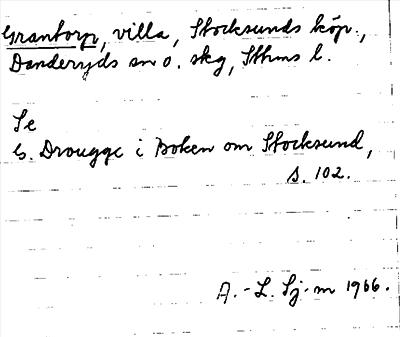 Grantorp, villa, Stocksunds köp.,
Danderyds sn o. skg, Sthms l.
Se
G. Drougge i Boken om Stocksund,
s. 102.
A.-L. Sj-m 1966.